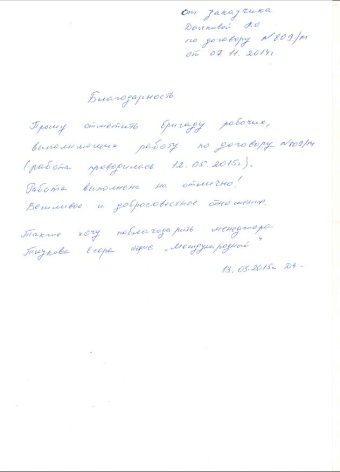 от заказчика
по договору №809/м
от 07.11.2014г
Благодарность
Прошу отметить бригаду рабочих,
выполняющих работу по договору №809/м
(работа проводилась 12.05.2015г).
Работа выполнена на отлично!
Вежливое и добросовестное отношение.
Также хочу поблагодарить менеджера
Егора офис „Международной"
13.05.2015г